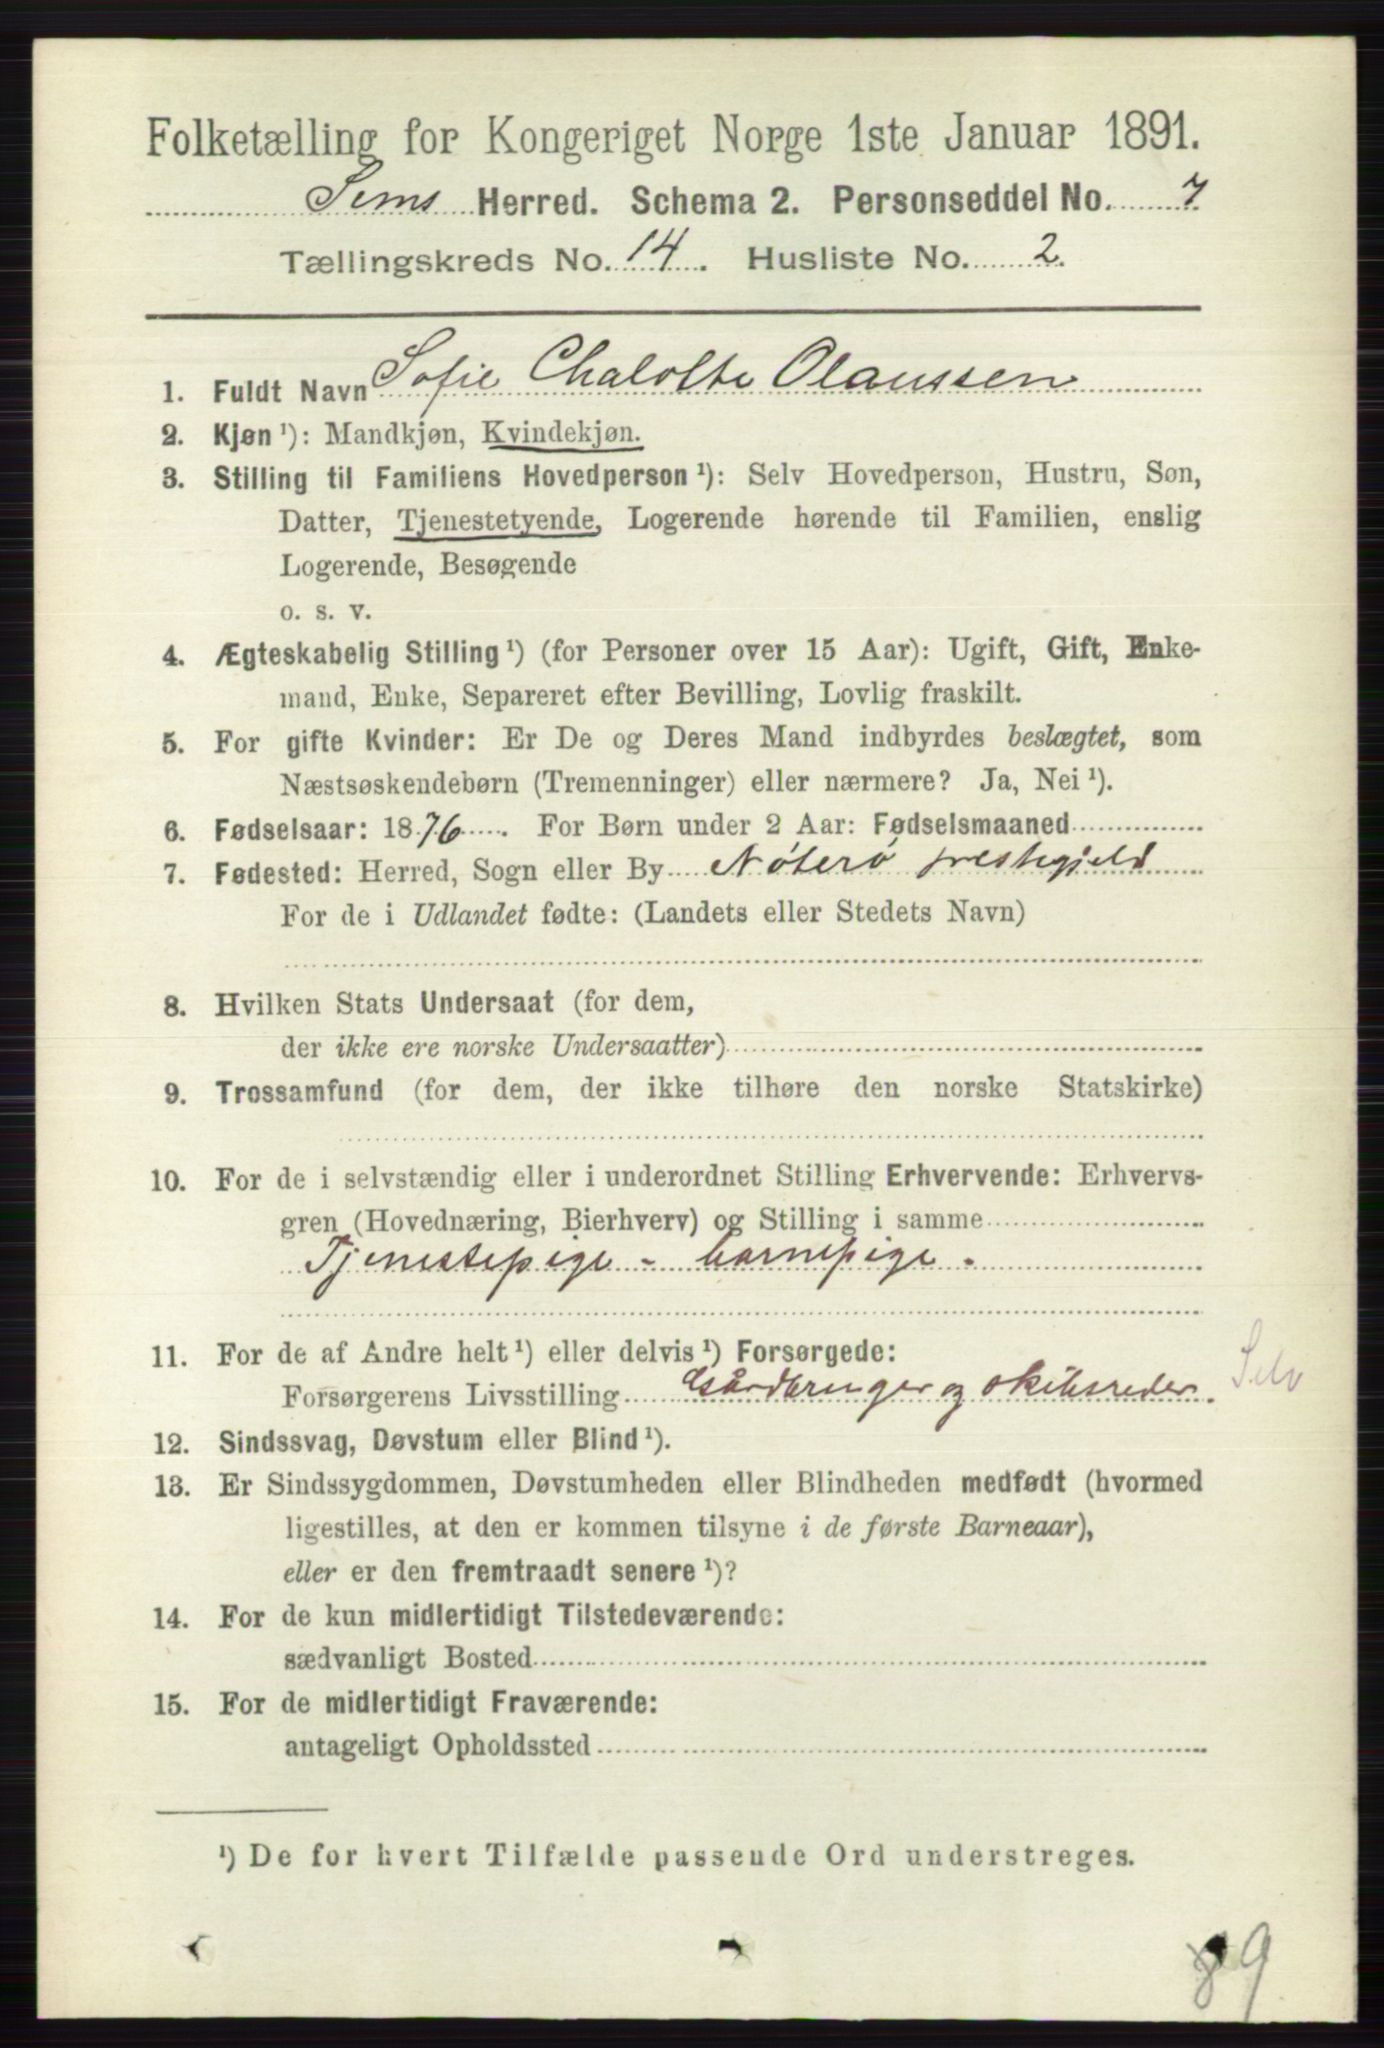 Folketælling for Kongeriget Norge 1ste Januar 1891.
Sems Herred. Schema 2. Personseddel No. 7
Tællingskreds No. 14. Husliste No. 2.
1. Fuldt Navn Sofie Chalolte Olaussen
2. Kjøn ¹): Mandkjøn, Kvindekjøn.
3. Stilling til Familiens Hovedperson ¹): Selv Hovedperson, Hustru, Søn,
Datter, Tjenestetyende, Logerende hørende til Familien, enslig
Logerende, Besøgende
o. s. v.
4. Ægteskabelig Stilling ¹) (for Personer over 15 Aar): Ugift, Gift, Enke-
mand, Enke, Separeret efter Bevilling, Lovlig fraskilt.
5. For gifte Kvinder: Er De og Deres Mand indbyrdes beslægtet, som
Næstsøskendebørn (Tremenninger) eller nærmere? Ja, Nei ¹).
6. Fødselsaar: 1876. For Børn under 2 Aar: Fødselsmaaned
7. Fødested: Herred, Sogn eller By Nøterø prestegjeld
For de i Udlandet fødte: (Landets eller Stedets Navn)
8. Hvilken Stats Undersaat (for dem,
der ikke ere norske Undersaatter)
9. Trossamfund (for dem, der ikke tilhøre den norske Statskirke)
10. For de i selvstændig eller i underordnet Stilling Erhvervende: Erhvervs-
gren (Hovednæring, Bierhverv) og Stilling i samme
Tjenestepige - barnepige.
11. For de af Andre helt ¹) eller delvis ¹) Forsørgede:
Forsørgerens Livsstilling Gårdbruger og skibsreder. Selv
12. Sindssvag, Døvstum eller Blind ¹).
13. Er Sindssygdommen, Døvstumheden eller Blindheden medfødt (hvormed
ligestilles, at den er kommen tilsyne i de første Barneaar),
eller er den fremtraadt senere ¹)?
14. For de kun midlertidigt Tilstedeværende:
sædvanligt Bosted
15. For de midlertidigt Fraværende:
antageligt Opholdssted
¹) De for hvert Tilfælde passende Ord understreges.
89